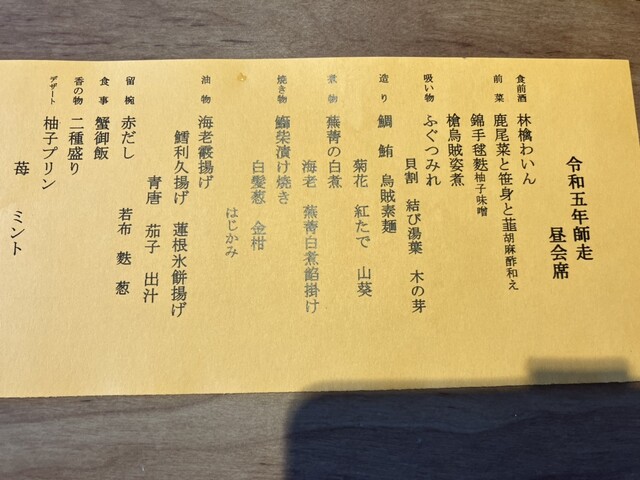 令和五年師走
昼会席
食前酒 林檎わいん
前菜 鹿尾菜と笹身と韮胡麻酢和え
錦手毬麩柚子味噌
槍烏賊姿煮
吸い物 ふぐつみれ
貝割 結び湯葉 木の芽
造り 鯛 鮪 烏賊素麺
菊花 紅たで 山葵
煮物 蕪菁の白煮
海老 蕪菁白煮餡掛け
焼き物 鰤柴漬け焼き
白髪葱 金柑
はじかみ
油物 海老霰揚げ
鱈利久揚げ 蓮根氷餅揚げ
青唐 茄子 出汁
留椀 赤だし
若布 麩 葱
食事 蟹御飯
香の物 二種盛り
デザート 柚子プリン
苺 ミント